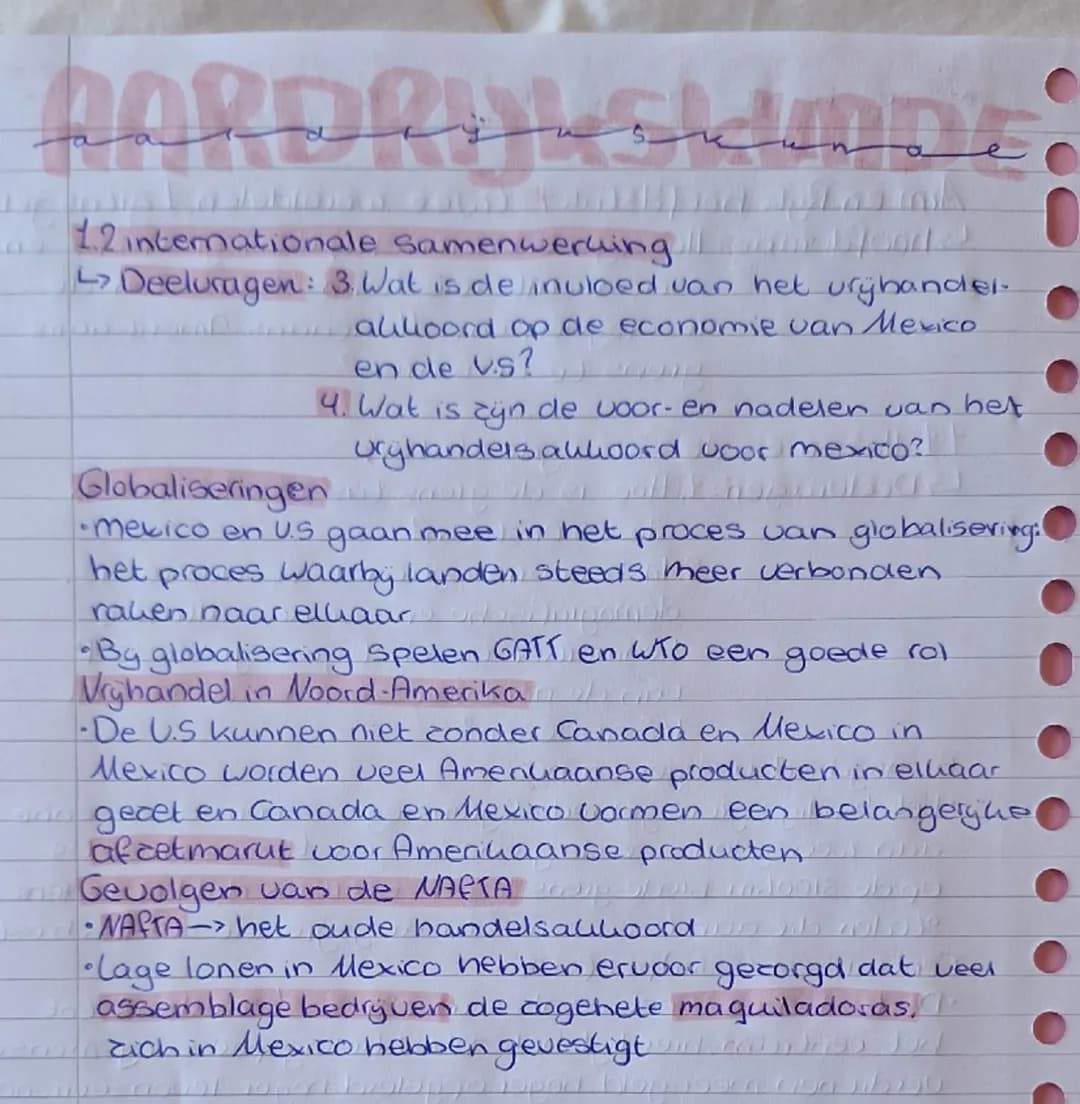 AARDRIJKSKUNDE
aardrijkskunde
1.2 internationale samenwerking
↳ Deelvragen: 3. Wat is de invloed van het vrijhandel-
akkoord op de economie van Mexico
en de V.S?
4. Wat is zijn de voor- en nadelen van het
vrijhandelsakkoord voor mexico?
Globaliseringen
• mexico en U.S gaan mee in het proces van globalisering:
het proces waarbij landen steeds meer verbonden
raken naar elkaar
• Bij globalisering spelen GATT en WTO een goede rol
Vrijhandel in Noord-Amerika
• De U.S kunnen niet zonder Canada en Mexico in
Mexico worden veel Amerikaanse producten in elkaar
gezet en Canada en Mexico vormen een belangerijke
afzetmarkt voor Amerikaanse producten
Gevolgen van de NAFTA
• NAFTA → het oude handelsakkoord
• Lage lonen in Mexico hebben ervoor gezorgd dat veel
assemblage bedrijven de zogehete maquiladoras,
zich in Mexico hebben gevestigt